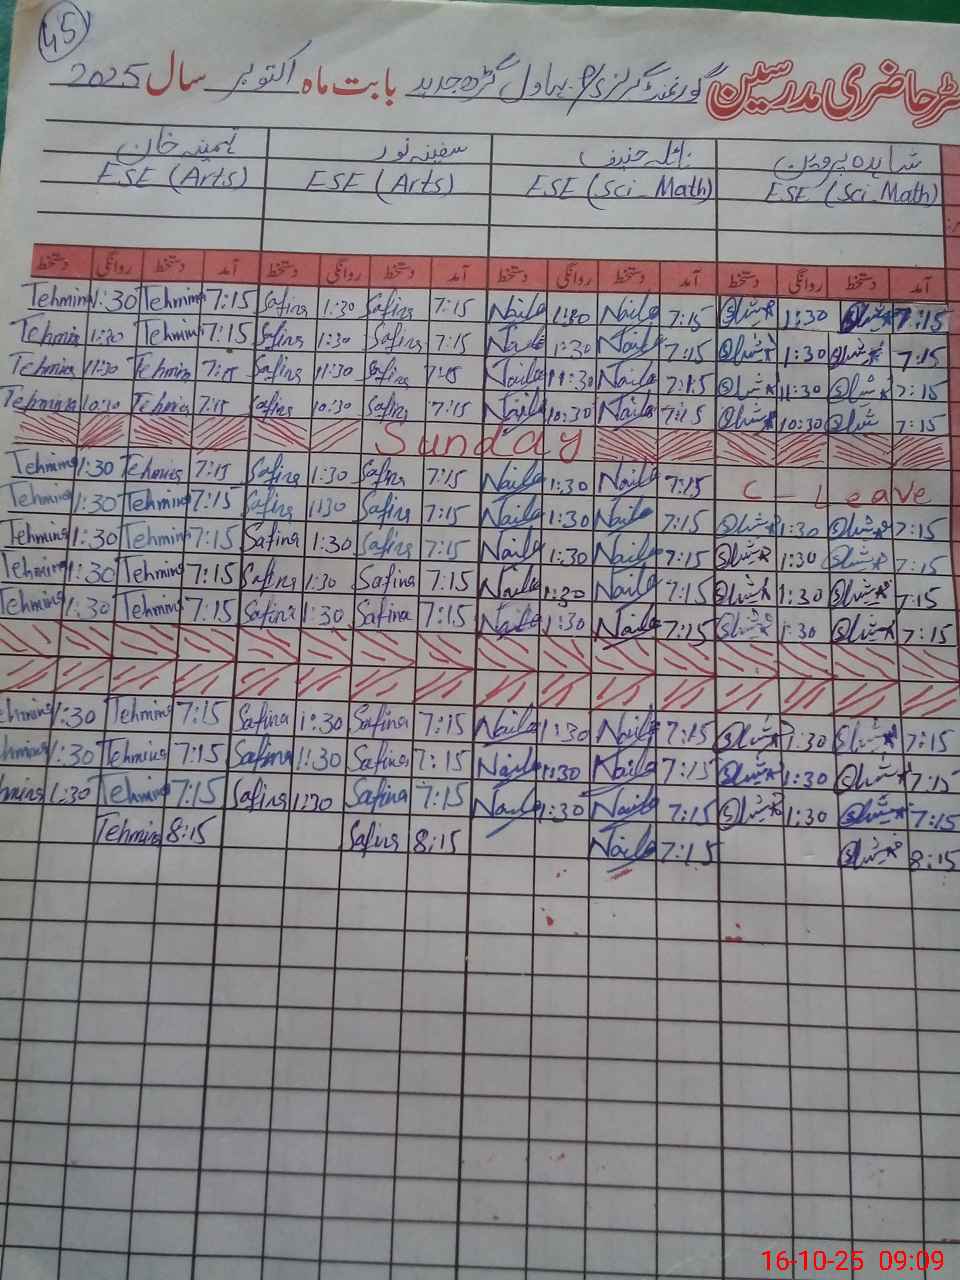 45
رجسٹر حاضری مدرسین گورنمنٹ گرلز P/S بہاول گڑھ جدید بابت ماہ اکتوبر سال 2025
شاہدہ پروین نائلہ حنیف سفینہ نور تہمینہ خان
ESE (Arts) ESE (Arts) ESE (Sci_Math) ESE (Sci_Math)
آمد دستخط روانگی دستخط آمد دستخط روانگی دستخط آمد دستخط روانگی دستخط آمد دستخط روانگی دستخط
Tehmina 1:30 Tehmina 7:15 Safina 1:30 Safina 7:15 Naila 1:30 Naila 7:15 1:30 7:15
Tehmina 1:30 Tehmina 7:15 Safina 1:30 Safina 7:15 Naila 1:30 Naila 7:15 1:30 7:15
Tehmina 11:30 Tehmina 7:15 Safina 11:30 Safina 7:15 Naila 11:30 Naila 7:15 11:30 7:15
Tehmina Tehmina 7:15 Safina 10:30 Safina 7:15 Naila 10:30 Naila 7:15 10:30 7:15
Sunday
Tehmina 1:30 Tehmina 7:15 Safina 1:30 Safina 7:15 Naila 1:30 Naila 7:15 C - Leave
Tehmina 1:30 Tehmina 7:15 Safina 1:30 Safina 7:15 Naila 1:30 Naila 7:15 1:30 7:15
Tehmina 1:30 Tehmina 7:15 Safina 1:30 Safina 7:15 Naila 1:30 Naila 7:15 1:30 7:15
Tehmina 1:30 Tehmina 7:15 Safina 1:30 Safina 7:15 Naila 1:30 Naila 7:15 1:30 7:15
Tehmina 1:30 Tehmina 7:15 Safina 1:30 Safina 7:15 Naila 1:30 Naila 7:15 1:30 7:15
Tehmina 1:30 Tehmina 7:15 Safina 1:30 Safina 7:15 Naila 1:30 Naila 7:15 1:30 7:15
Tehmina 1:30 Tehmina 7:15 Safina 1:30 Safina 7:15 Naila 1:30 Naila 7:15 1:30 7:15
Tehmina 1:30 Tehmina 7:15 Safina 1:30 Safina 7:15 Naila 1:30 Naila 7:15 1:30 7:15
Tehmina 8:15 Safina 8:15 Naila 7:15 8:15
16-10-25 09:09